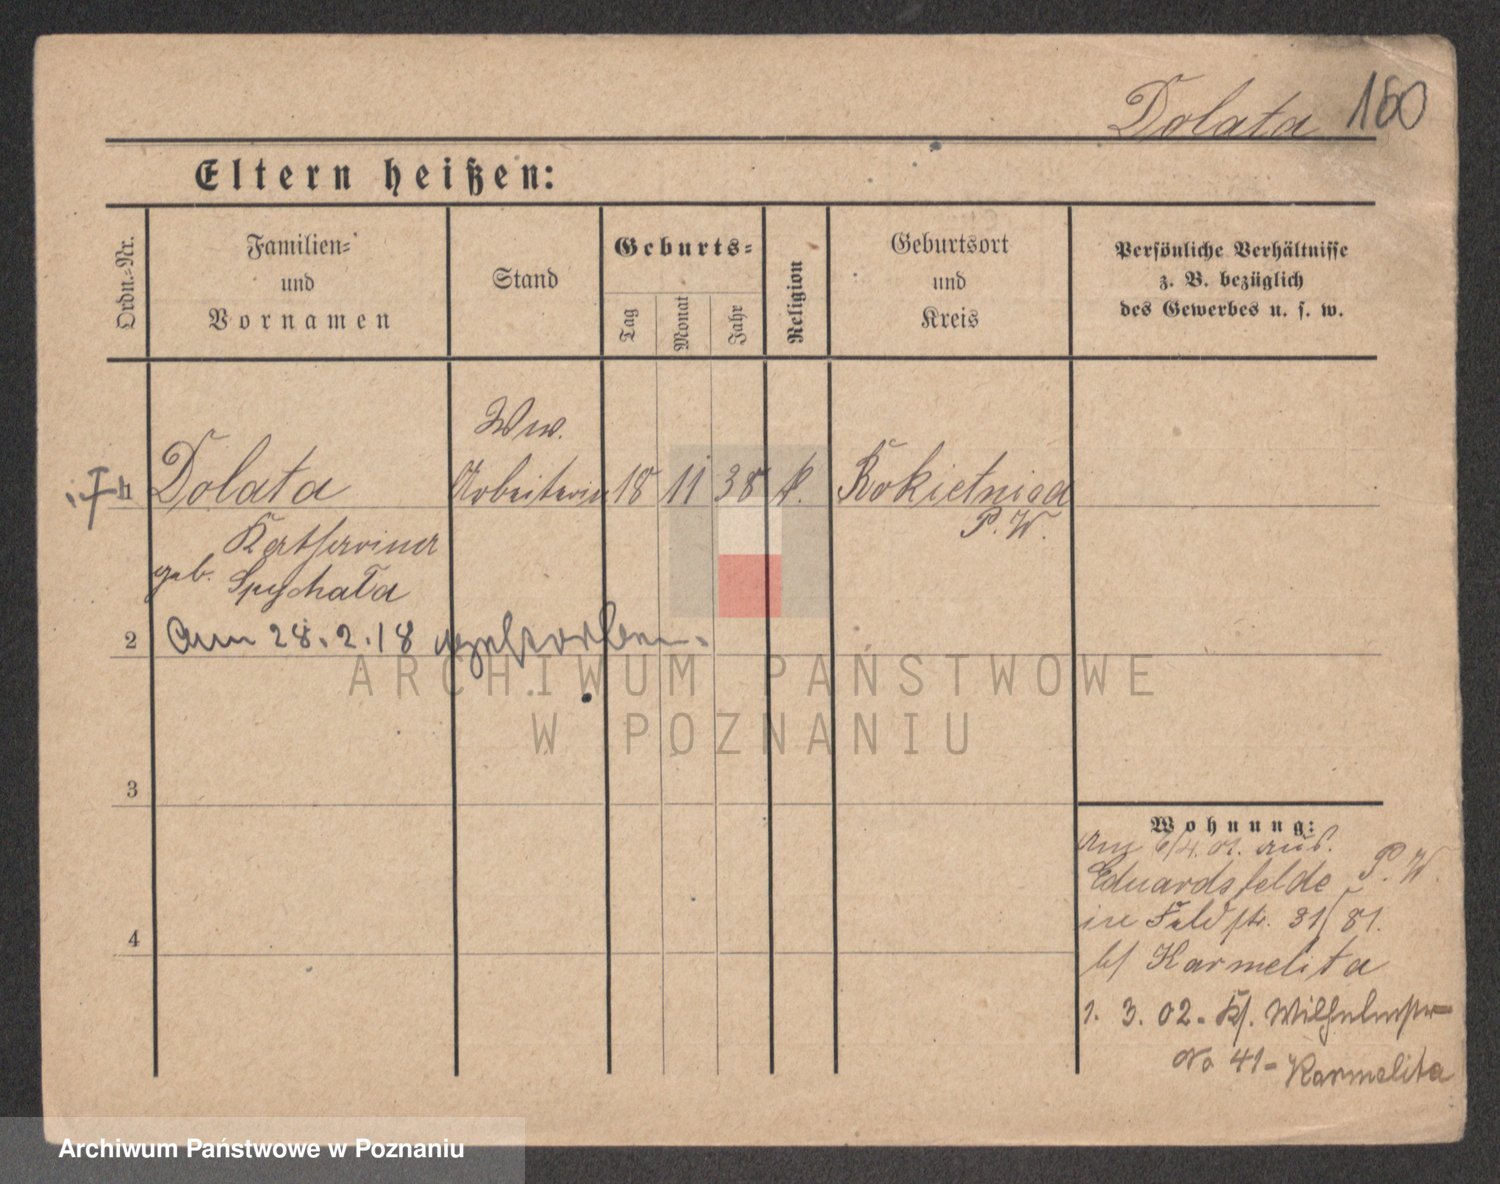 Dolata 160
Eltern heißen:
Ordn.-Nr.
Familien-
und
Vornamen
Stand
Geburts-
Tag
Monat
Jahr
Religion
Geburtsort
und
Kreis
Persönliche Verhältnisse
z. B. bezüglich
des Gewerbes u. s. w.
Ww.
1 Dolata Arbeiterin 18 11 38 k. Rokietnica
P. W.
Katharina
geb. Spychała
2 Am 28.2.18 gestorben.
ARCHIWUM PAŃSTWOWE
W POZNANIU
3
Wohnung:
6/4.01. aus.
Eduardsfelde P. W.
in Feldstr. 31/81.
b/ Karmelita
4
1. 3. 02. Kl. Wilhelmstr
No 41- Karmelita
Archiwum Państwowe w Poznaniu